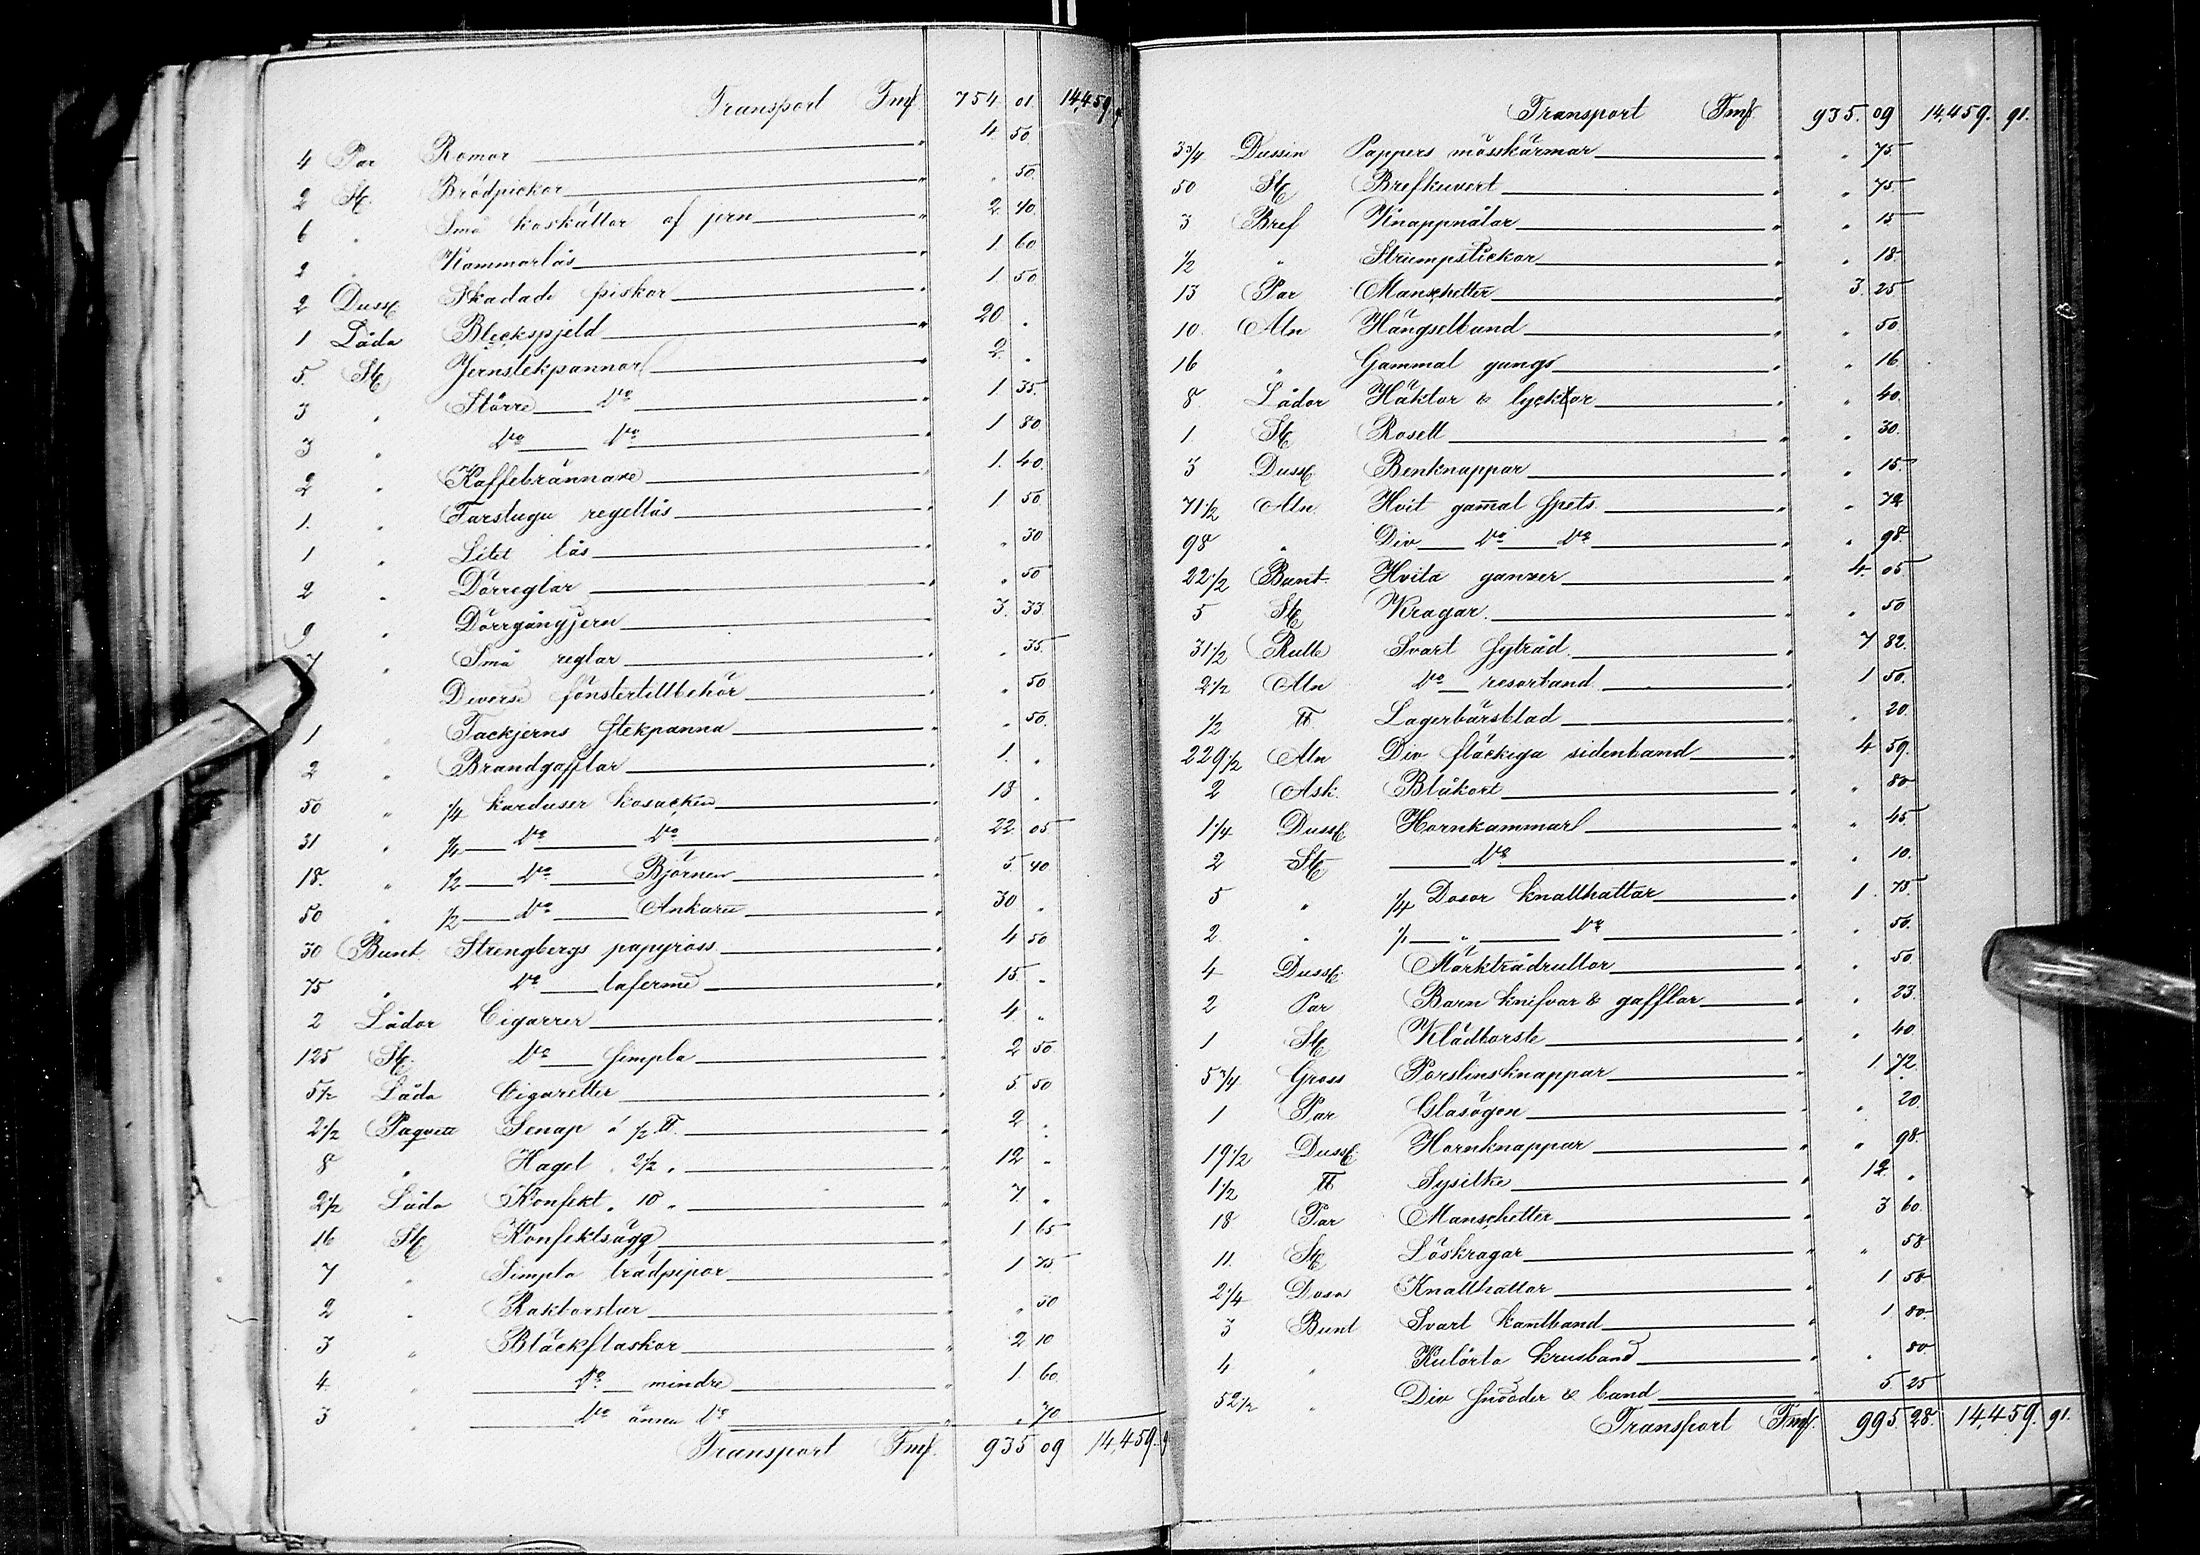 Transport Fmf. 754. 01. 14,459.
4 Par Remor 4. 50.
2 St. Brödpickor " 50.
6 " Små koskällor af jern 2. 40.
2 " Kammarlås 1. 60
2 Duss. Skadade piskor 1. 50
1 Låda Bleckspjeld 20 "
5. St. Jernstekpannor 2. "
3 " Större do 1 35.
3 " do do 1 80.
2 " Kaffebrännare 1. 40.
1. " Farstugu regellås 1 50.
1 " Litet lås " 30
2 " Dörreglar " 50
9 " Dörrgångjern 3. 33.
7 " Små reglar " 35.
Diverse fönstertillbehör " 50
1 " Tackjerns stekpanna " 50.
2 " Brandgafflar 1. "
50 " 1/4 karduser kosacken 13 "
31 " 1/4 do do 22 05
18. " 1/2 do Björnen 5. 40
50 " 1/2 do Ankaru 30 "
30 Bunt Strengbergs papyross 4 50
75 " do laferme 15. "
2 Lådor Cigarrer 4 "
125 St. do simpla 2 50
5 1/2 Låda Cigaretter 5 50
2 1/2 Paquett Senap á 1/2 ℔. 2 "
8 " Hagel " 2 1/2 " 12 "
2 1/2 Låda Konfekt " 10 " 7. "
16 St. Konfektsägg 1 65
7 " Simpla trädpipor 1 75
2 " Rakborstar " 30
3 " Bläckflaskor 2 10
4. " do mindre 1. 60
3 " do ännu do " 70
Transport Fmf. 935 09 14,459.
Transport Fmf 935. 09 14,459. 91.
3 3/4 Dussin Pappers mösskärmar " 75.
50 St. Brefkuvert " 75
3 Bref Knappnålar " 15
1/2 " Strumpstickor " 18.
13 Par Manschetter 3. 25
10. Aln Hängselband " 50
16 " Gammal gungs " 16.
8 Lådor Häktor & lycktor " 40.
1. St. Rosett " 30.
3 Duss. Benknappar " 15
71 1/2 Aln Hvit gam̄al spets " 72
98 " Div do do " 98.
22 1/2 Bunt Hvita ganser 4. 05
5 St. Kragar " 50
31 1/2 Rulle Svart sytråd 7 82.
2 1/2 Aln do resorband 1 50.
1/2 ℔ Lagerbärsblad " 20.
229 1/2 Aln Div fläckiga sidenband 4 59.
2 Ask. Blåkort " 80
1 1/4 Duss. Hornkammar " 45
2 St. do " 10.
5 " 1/4 Dosor knallhattar 1. 75.
2. " 1/1 " do " 50.
4 Duss. Märktrådrullor " 50
2 Par Barn knifvar & gafflar " 23.
1 St. Klädborste " 40
5 3/4 Gross Porslinsknappar 1 72.
1 Par Glasögon " 20.
19 1/2 Duss. Hornknappar " 98.
1 1/2 ℔ Sysilke 12. "
18 Par Manschetter 3 60.
11. St. Löskragar " 58
2 1/4 Dosa Knallhattar 1 58
3 Bunt Svart kantband 1. 80.
4 " Kulörta krusband " 80
52 1/2 " Div snodder & band 5. 25
Transport Fmf. 995 28. 14,459. 91.